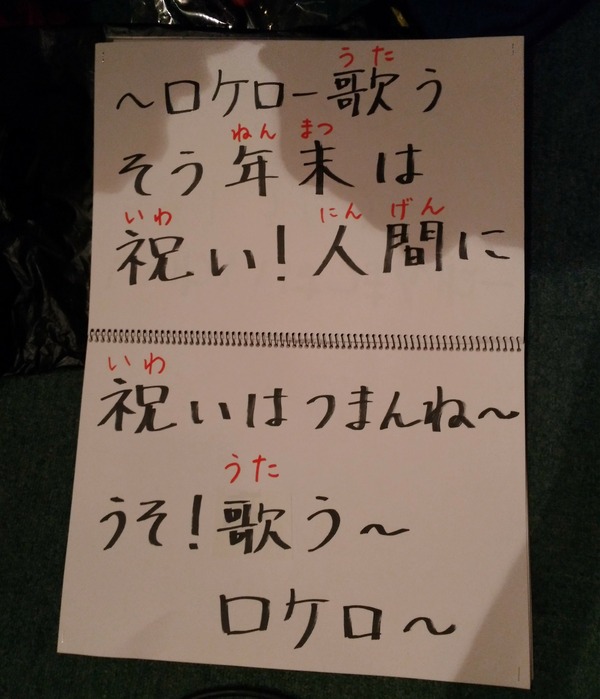 うた
～ロケロー歌う
ねん まつ
そう年末は
いわ にん げん
祝い！人間に
いわ
祝いはつまんね～
うた
うそ！歌う～
ロケロ～